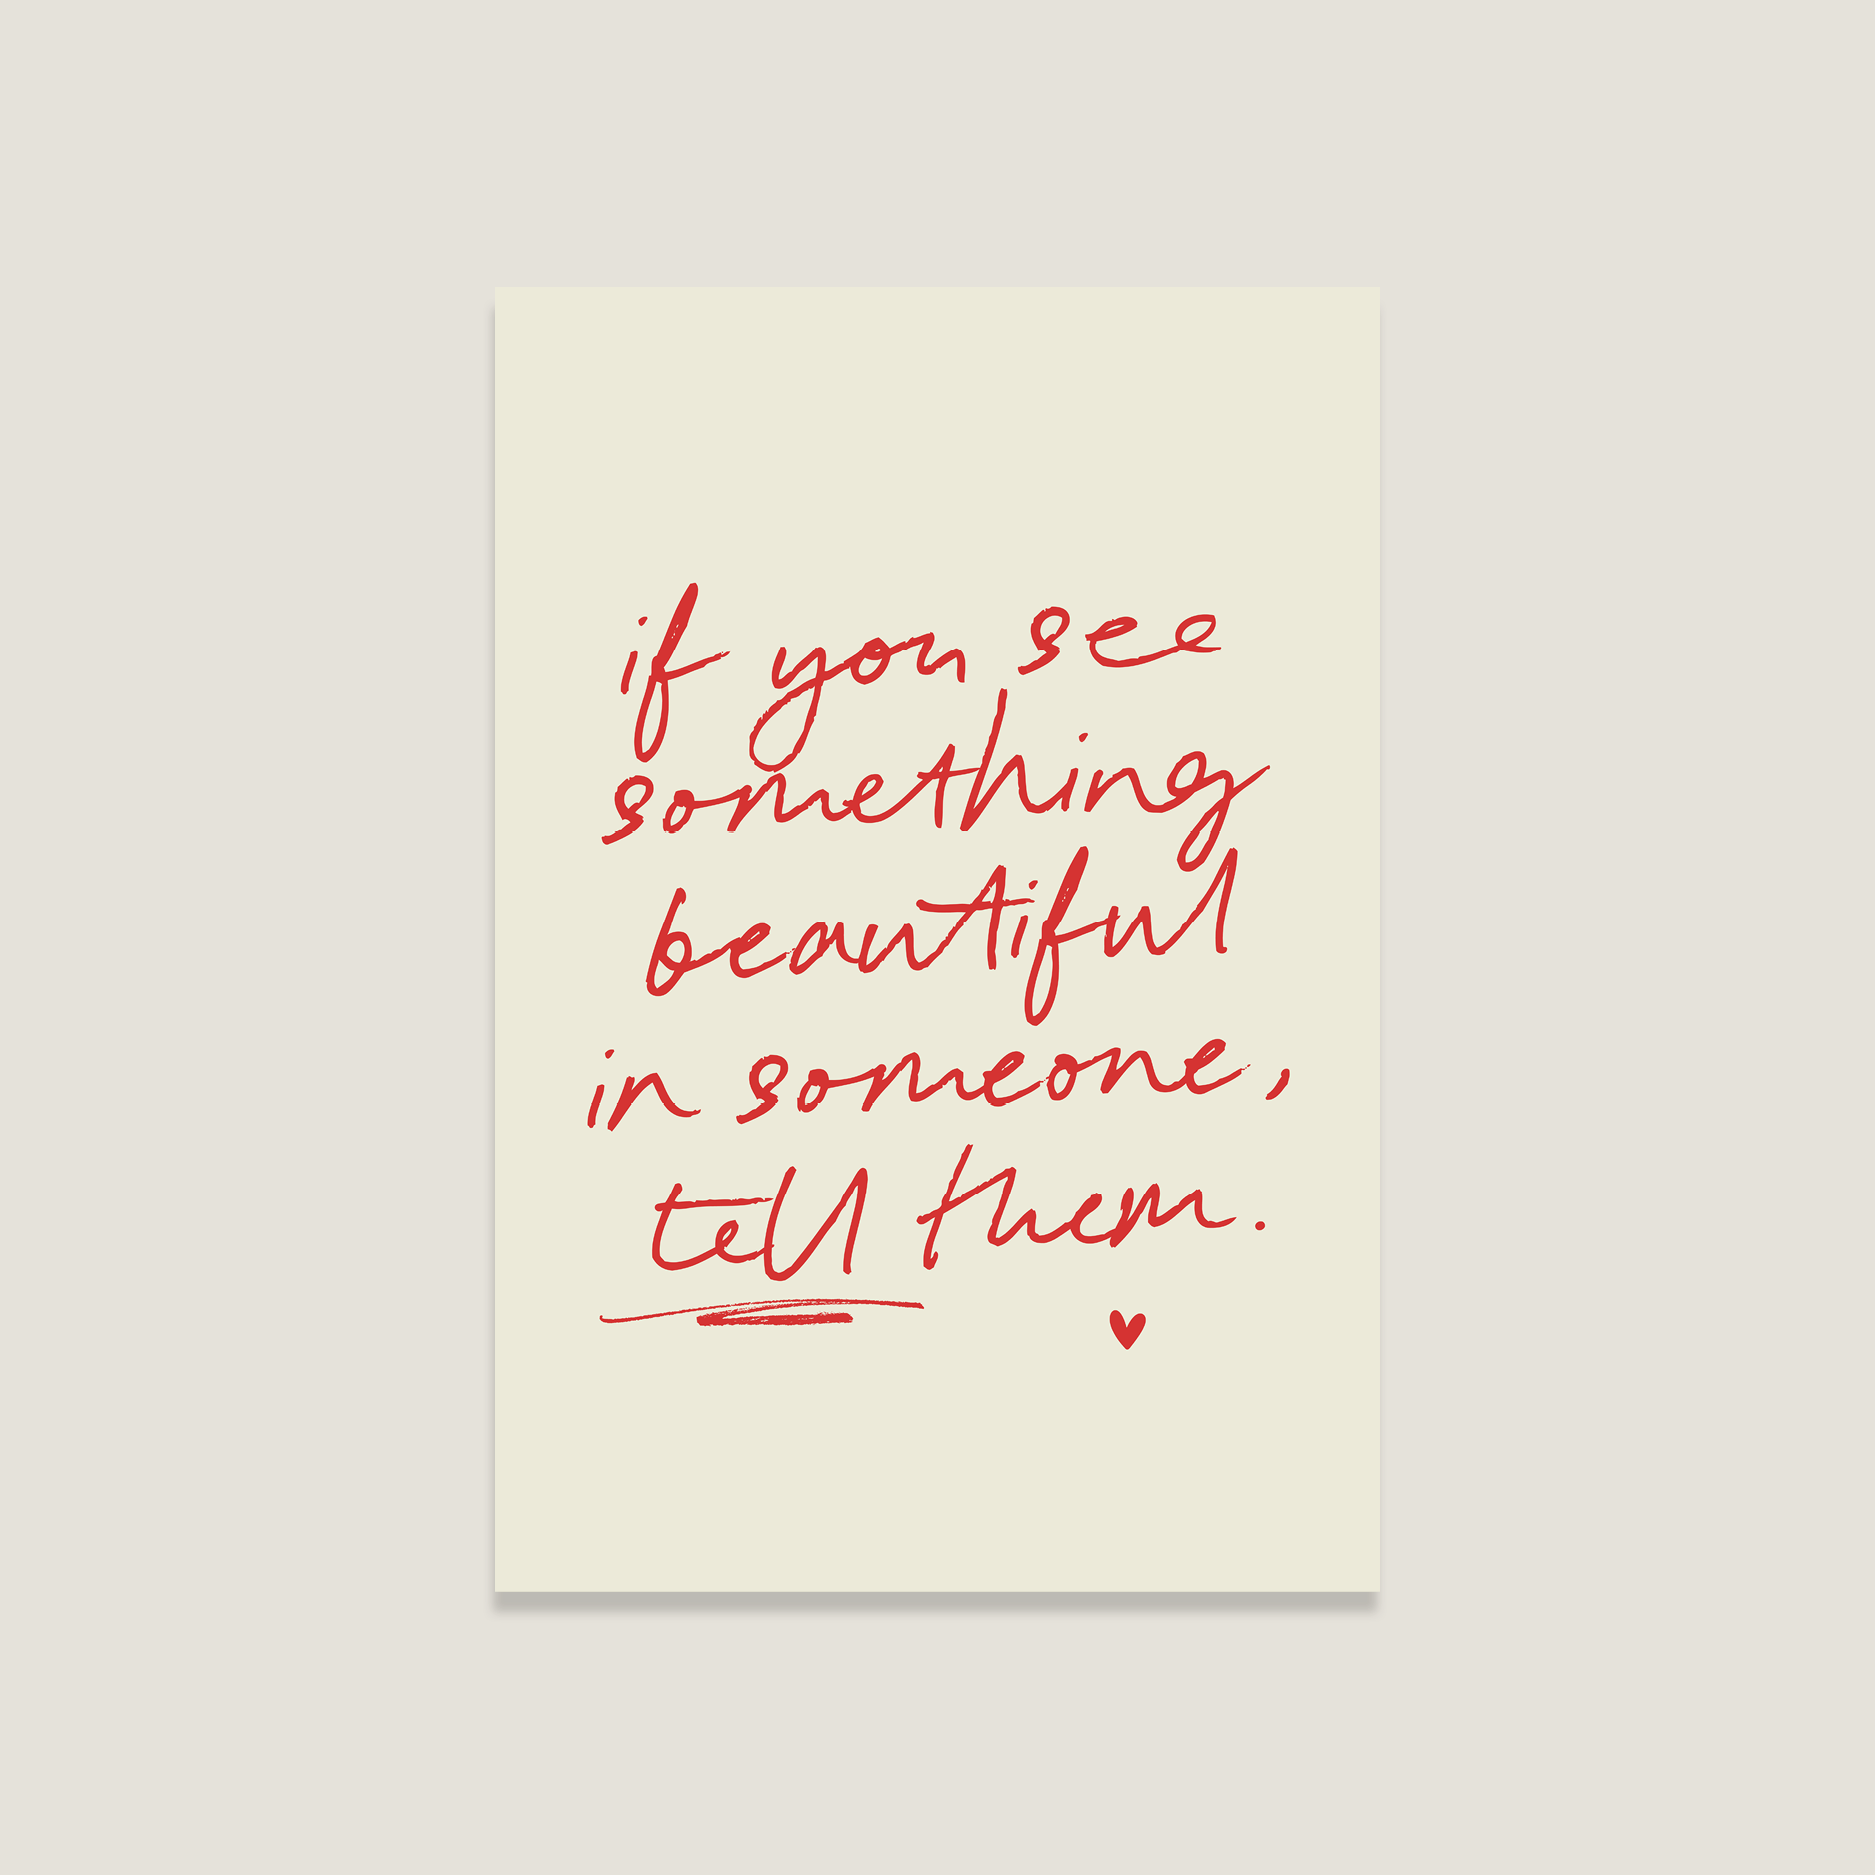 if you see
something
beautiful
in someone,
tell them.